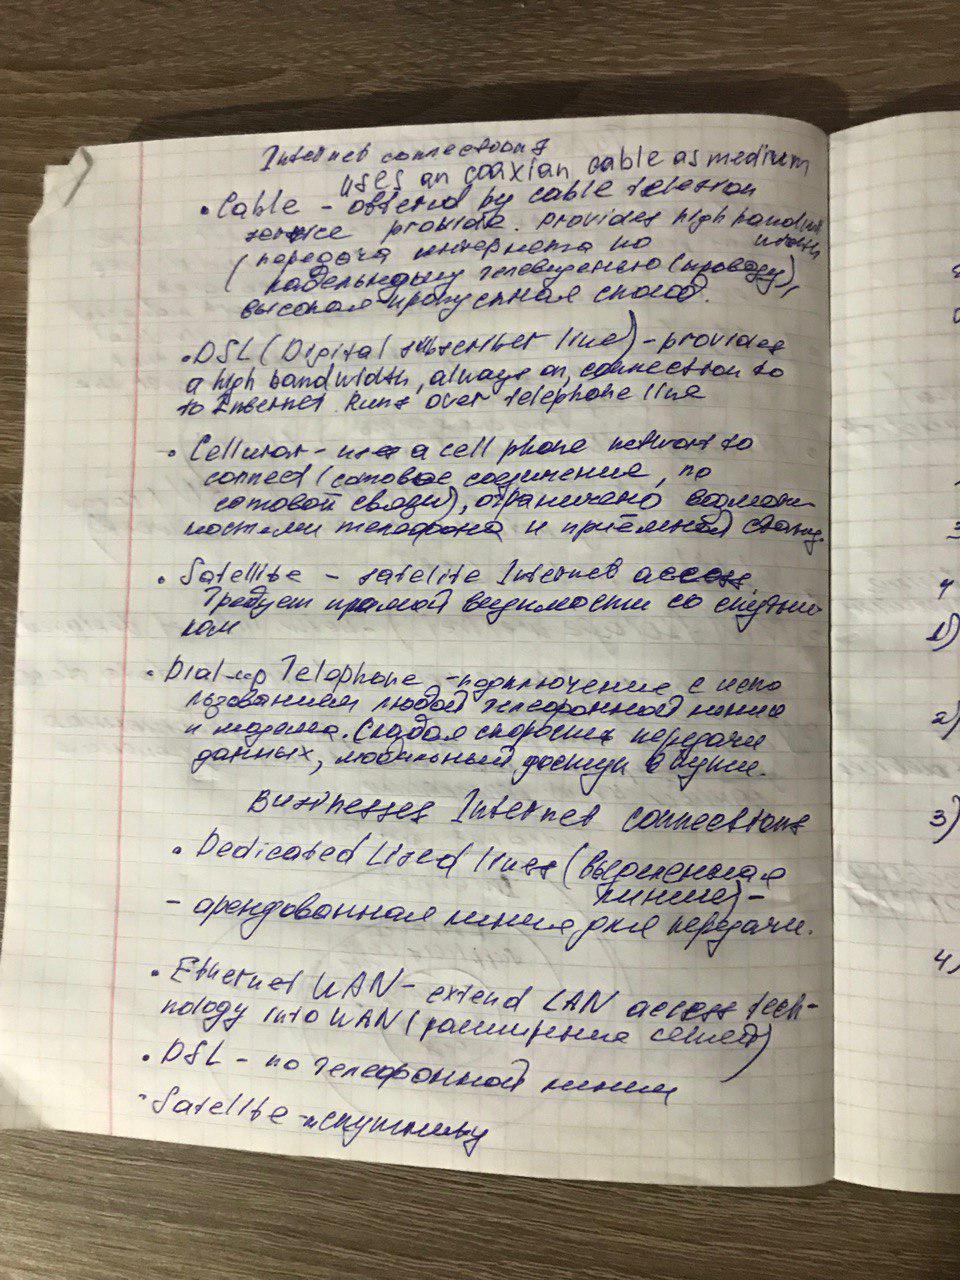 Internet connections
uses an coaxian cable as medium
• Cable - offered by cable television
service provide. provides high band width
(передача интернета по
кабельному телевидению (проводу),
высокая пропускная способ.
• DSL (Digital subscriber line) - provides
a high bandwidth, always on, connection to
to Internet. Runs over telephone line
• Cellular - use a cell phone network to
connect (сотовое соединение, по
сотовой связи), ограничено возмож-
ностями телефона и приёмной станц.
• Satellite - satelite Internet access.
Требует прямой видимости со спутни-
ком
• Dial-up Telephone - подключение с испо
льзованием любой телефонной линии
и модема. Слабая скорость передачи
данных, мобильный доступ в пути.
Businesses Internet connections
• Dedicated Lised lines (выделенная
линия) -
- арендованная линия для передачи.
• Ethernet WAN - extend LAN access tech-
nology into WAN (расширение сетей)
• DSL - по телефонной линии
• Satellite - спутнику
1
3
4
1)
2)
3)
4)